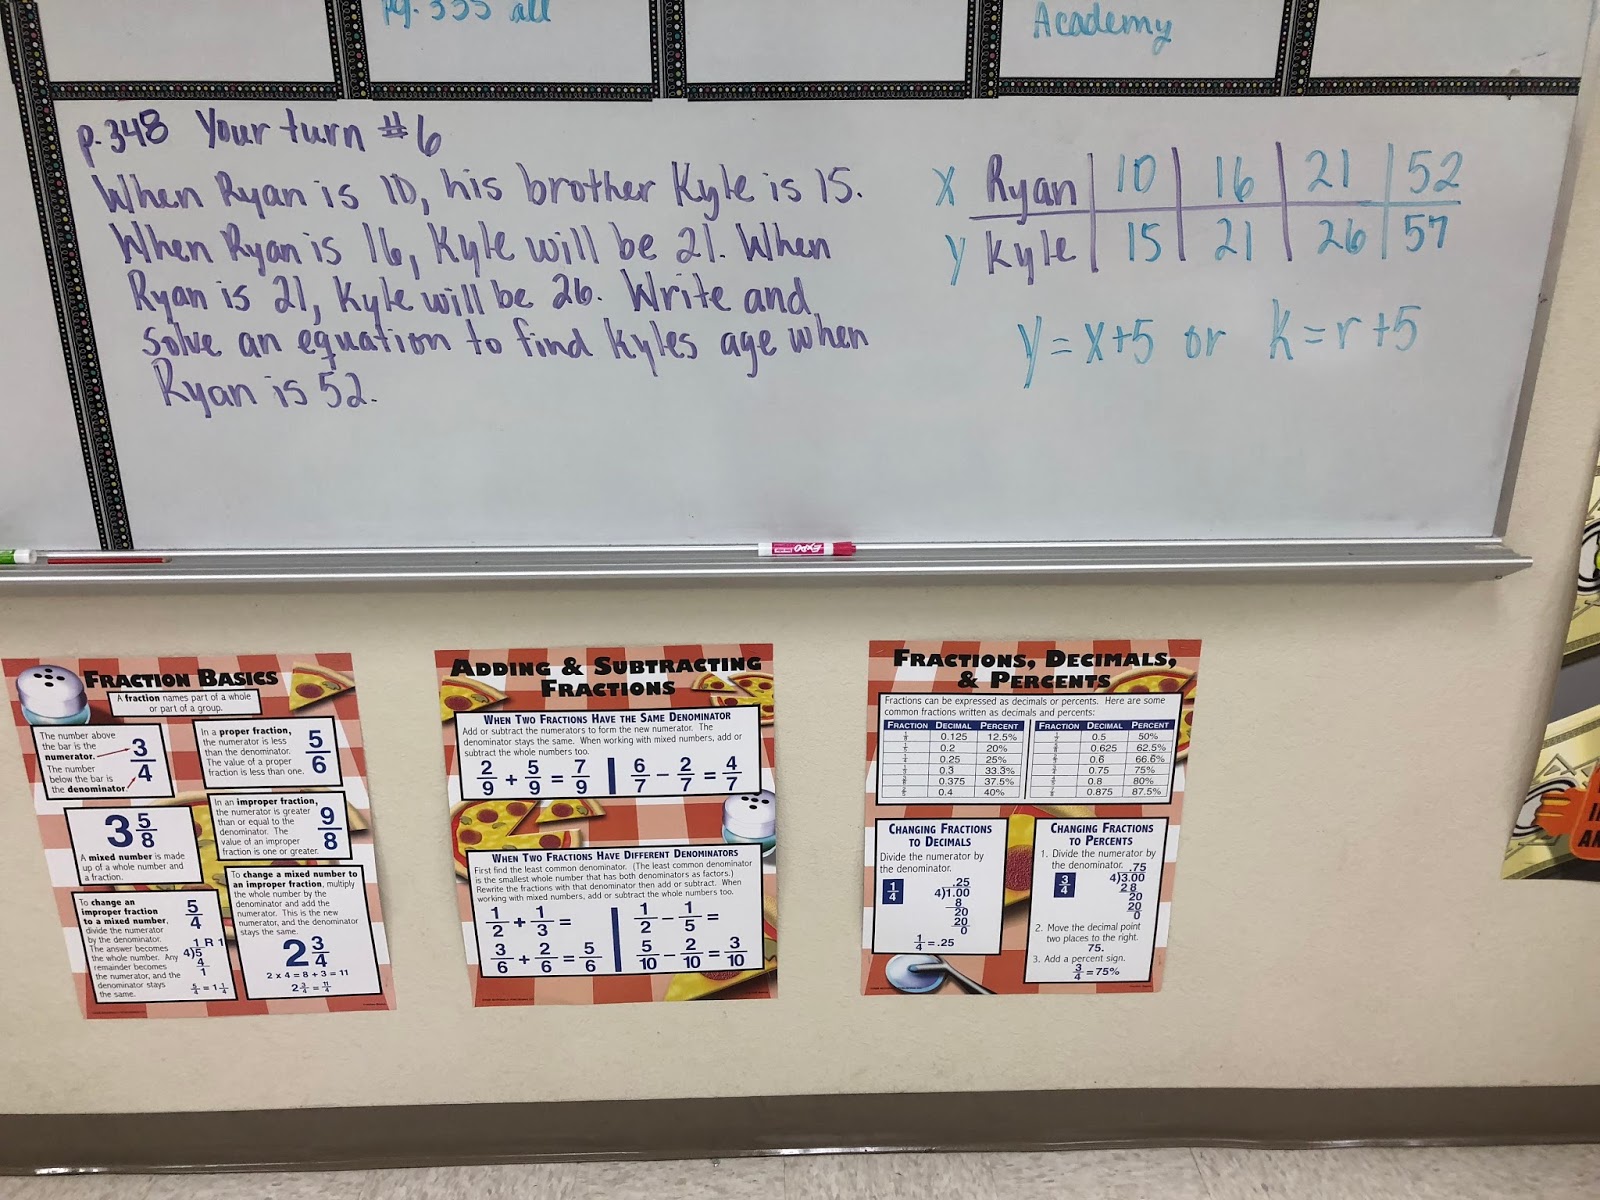 pg. 335 all
Academy
p. 348 Your turn #6
When Ryan is 10, his brother Kyle is 15.
When Ryan is 16, Kyle will be 21. When
Ryan is 21, Kyle will be 26. Write and
solve an equation to find Kyles age when
Ryan is 52.
x Ryan 10 16 21 52
y Kyle 15 21 26 57
y = x+5 or k = r+5
EXPO
FRACTION BASICS
A fraction names part of a whole
or part of a group.
The number above
the bar is the
numerator.
The number
below the bar is
the denominator.
3/4
In a proper fraction,
the numerator is less
than the denominator.
The value of a proper
fraction is less than one.
5/6
3 5/8
A mixed number is made
up of a whole number and
a fraction.
In an improper fraction,
the numerator is greater
than or equal to the
denominator. The
value of an improper
fraction is one or greater.
9/8
To change an
improper fraction
to a mixed number,
divide the numerator
by the denominator.
The answer becomes
the whole number. Any
remainder becomes
the numerator, and the
denominator stays
the same.
5/4
1 R 1
4)5
4
1
5/4 = 1 1/4
To change a mixed number to
an improper fraction, multiply
the whole number by the
denominator and add the
numerator. This is the new
numerator, and the denominator
stays the same.
2 3/4
2 x 4 = 8 + 3 = 11
2 3/4 = 11/4
ADDING & SUBTRACTING
FRACTIONS
WHEN TWO FRACTIONS HAVE THE SAME DENOMINATOR
Add or subtract the numerators to form the new numerator. The
denominator stays the same. When working with mixed numbers, add or
subtract the whole numbers too.
2/9 + 5/9 = 7/9 6/7 − 2/7 = 4/7
WHEN TWO FRACTIONS HAVE DIFFERENT DENOMINATORS
First find the least common denominator. (The least common denominator
is the smallest whole number that has both denominators as factors.)
Rewrite the fractions with that denominator then add or subtract. When
working with mixed numbers, add or subtract the whole numbers too.
1/2 + 1/3 = 1/2 − 1/5 =
3/6 + 2/6 = 5/6 5/10 − 2/10 = 3/10
FRACTIONS, DECIMALS,
& PERCENTS
Fractions can be expressed as decimals or percents. Here are some
common fractions written as decimals and percents:
FRACTION DECIMAL PERCENT FRACTION DECIMAL PERCENT
0.125 12.5% 0.5 50%
0.2 20% 0.625 62.5%
0.25 25% 0.6 66.6%
0.3 33.3% 0.75 75%
0.375 37.5% 0.8 80%
0.4 40% 0.875 87.5%
CHANGING FRACTIONS
TO DECIMALS
Divide the numerator by
the denominator.
1/4
.25
4)1.00
8
20
20
0
1/4 = .25
CHANGING FRACTIONS
TO PERCENTS
1. Divide the numerator by
the denominator.
3/4
.75
4)3.00
28
20
20
0
2. Move the decimal point
two places to the right.
75.
3. Add a percent sign.
3/4 = 75%